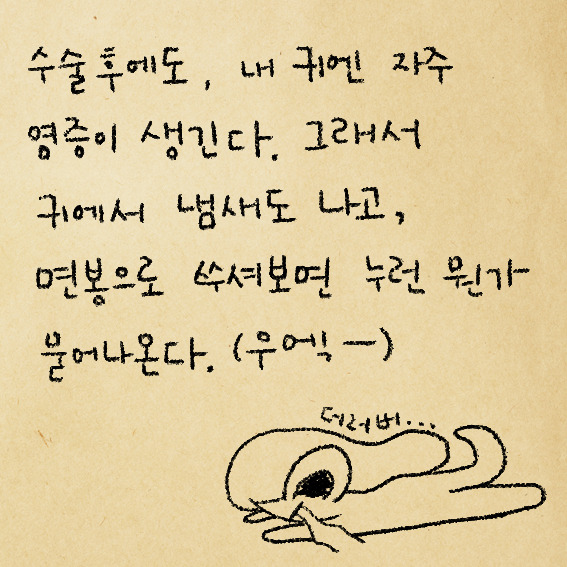 수술후에도, 내 귀엔 자주
염증이 생긴다. 그래서
귀에서 냄새도 나고,
면봉으로 쑤셔보면 누런 뭔가
묻어나온다. (우에익ㅡ)
더러버...